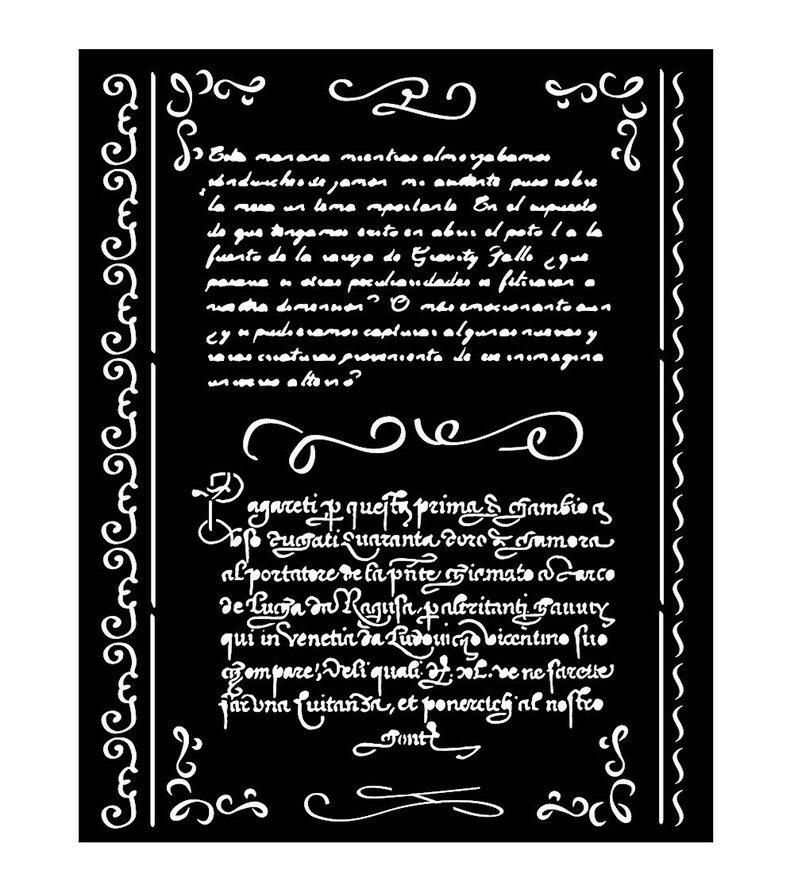 Esta manana mientras almorzabamos
sandwiches de jamon mi asistente puso sobre
la mesa un tema importante En el supuesto
de que tengamos exito en abrir el porta l a la
fuerte de la rareza de Gravity Falls ¿que
pasaria si otras peculiaridades se filtraran a
nuestra dimension? O mas emocionante aun
¿y si pudieramos capturar algunas nuevas y
raras criaturas proveniente de ese inimagina
universo alterno?
Pagareti p questa prima di chambio a
uso ducati Quaranta doro di chamora
al portatore de la pñte chiamato a Marco
de Lucha da Ragusa, p altritanti hauuty
qui in Venetia da Ludouico Vicentino suo
chompare, Deli quali d. xL. ve ne farette
far una Quitanza, et ponereteli al nostro
Conto